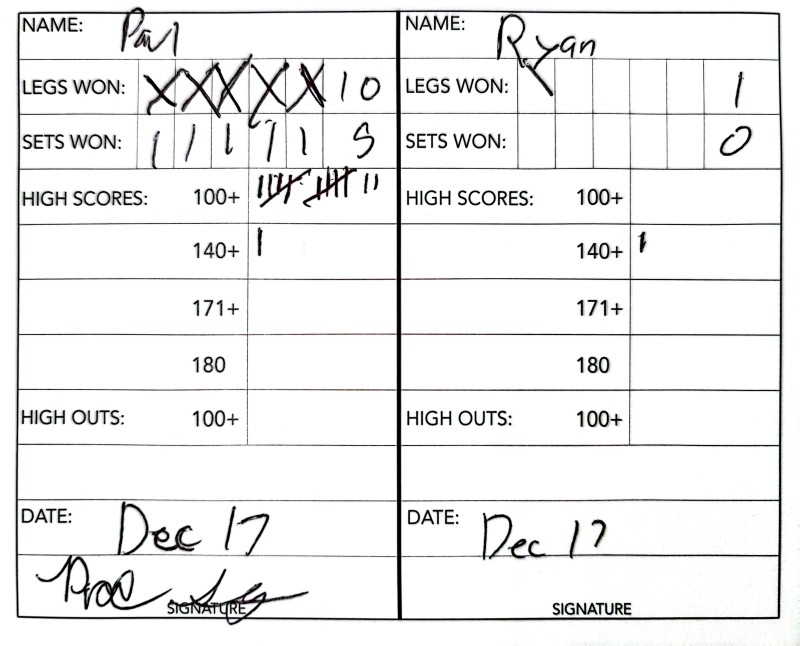 NAME: Paul
LEGS WON: X X X X X 10
SETS WON: 1 1 1 1 1 5
HIGH SCORES: 100+ |||| |||| ||
140+ |
171+
180
HIGH OUTS: 100+
DATE: Dec 17
SIGNATURE
NAME: Ryan
LEGS WON: \ 1
SETS WON: 0
HIGH SCORES: 100+
140+ |
171+
180
HIGH OUTS: 100+
DATE: Dec 17
SIGNATURE